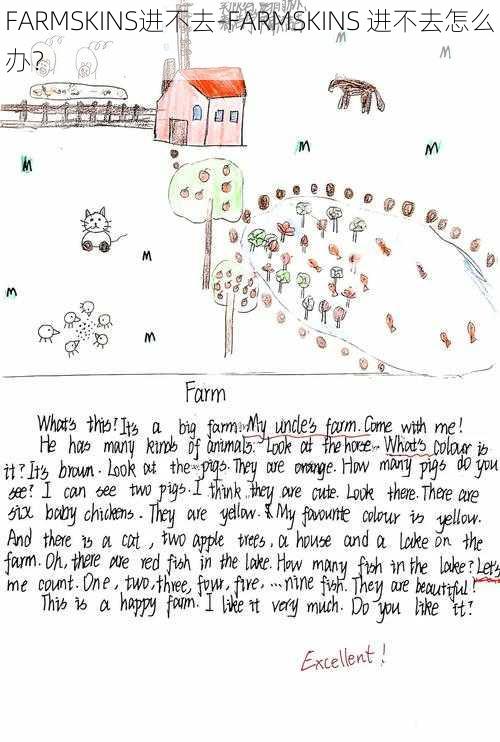 FARMSKINS进不去-FARMSKINS 进不去怎么
办？
Farm
What's this? It's a big farm. My uncle's farm. Come with me!
He has many kinds of animals. Look at the horse. What's colour is
it? It's brown. Look at the pigs. They are orange. How many pigs do you
see? I can see two pigs. I think they are cute. Look there. There are
six baby chickens. They are yellow. My favourite colour is yellow.
And there is a cat, two apple trees, a house and a lake on the
farm. Oh, there are red fish in the lake. How many fish in the lake? Let's
me count. One, two, three, four, five, ...nine fish. They are beautiful!
This is a happy farm. I like it very much. Do you like it?
Excellent!